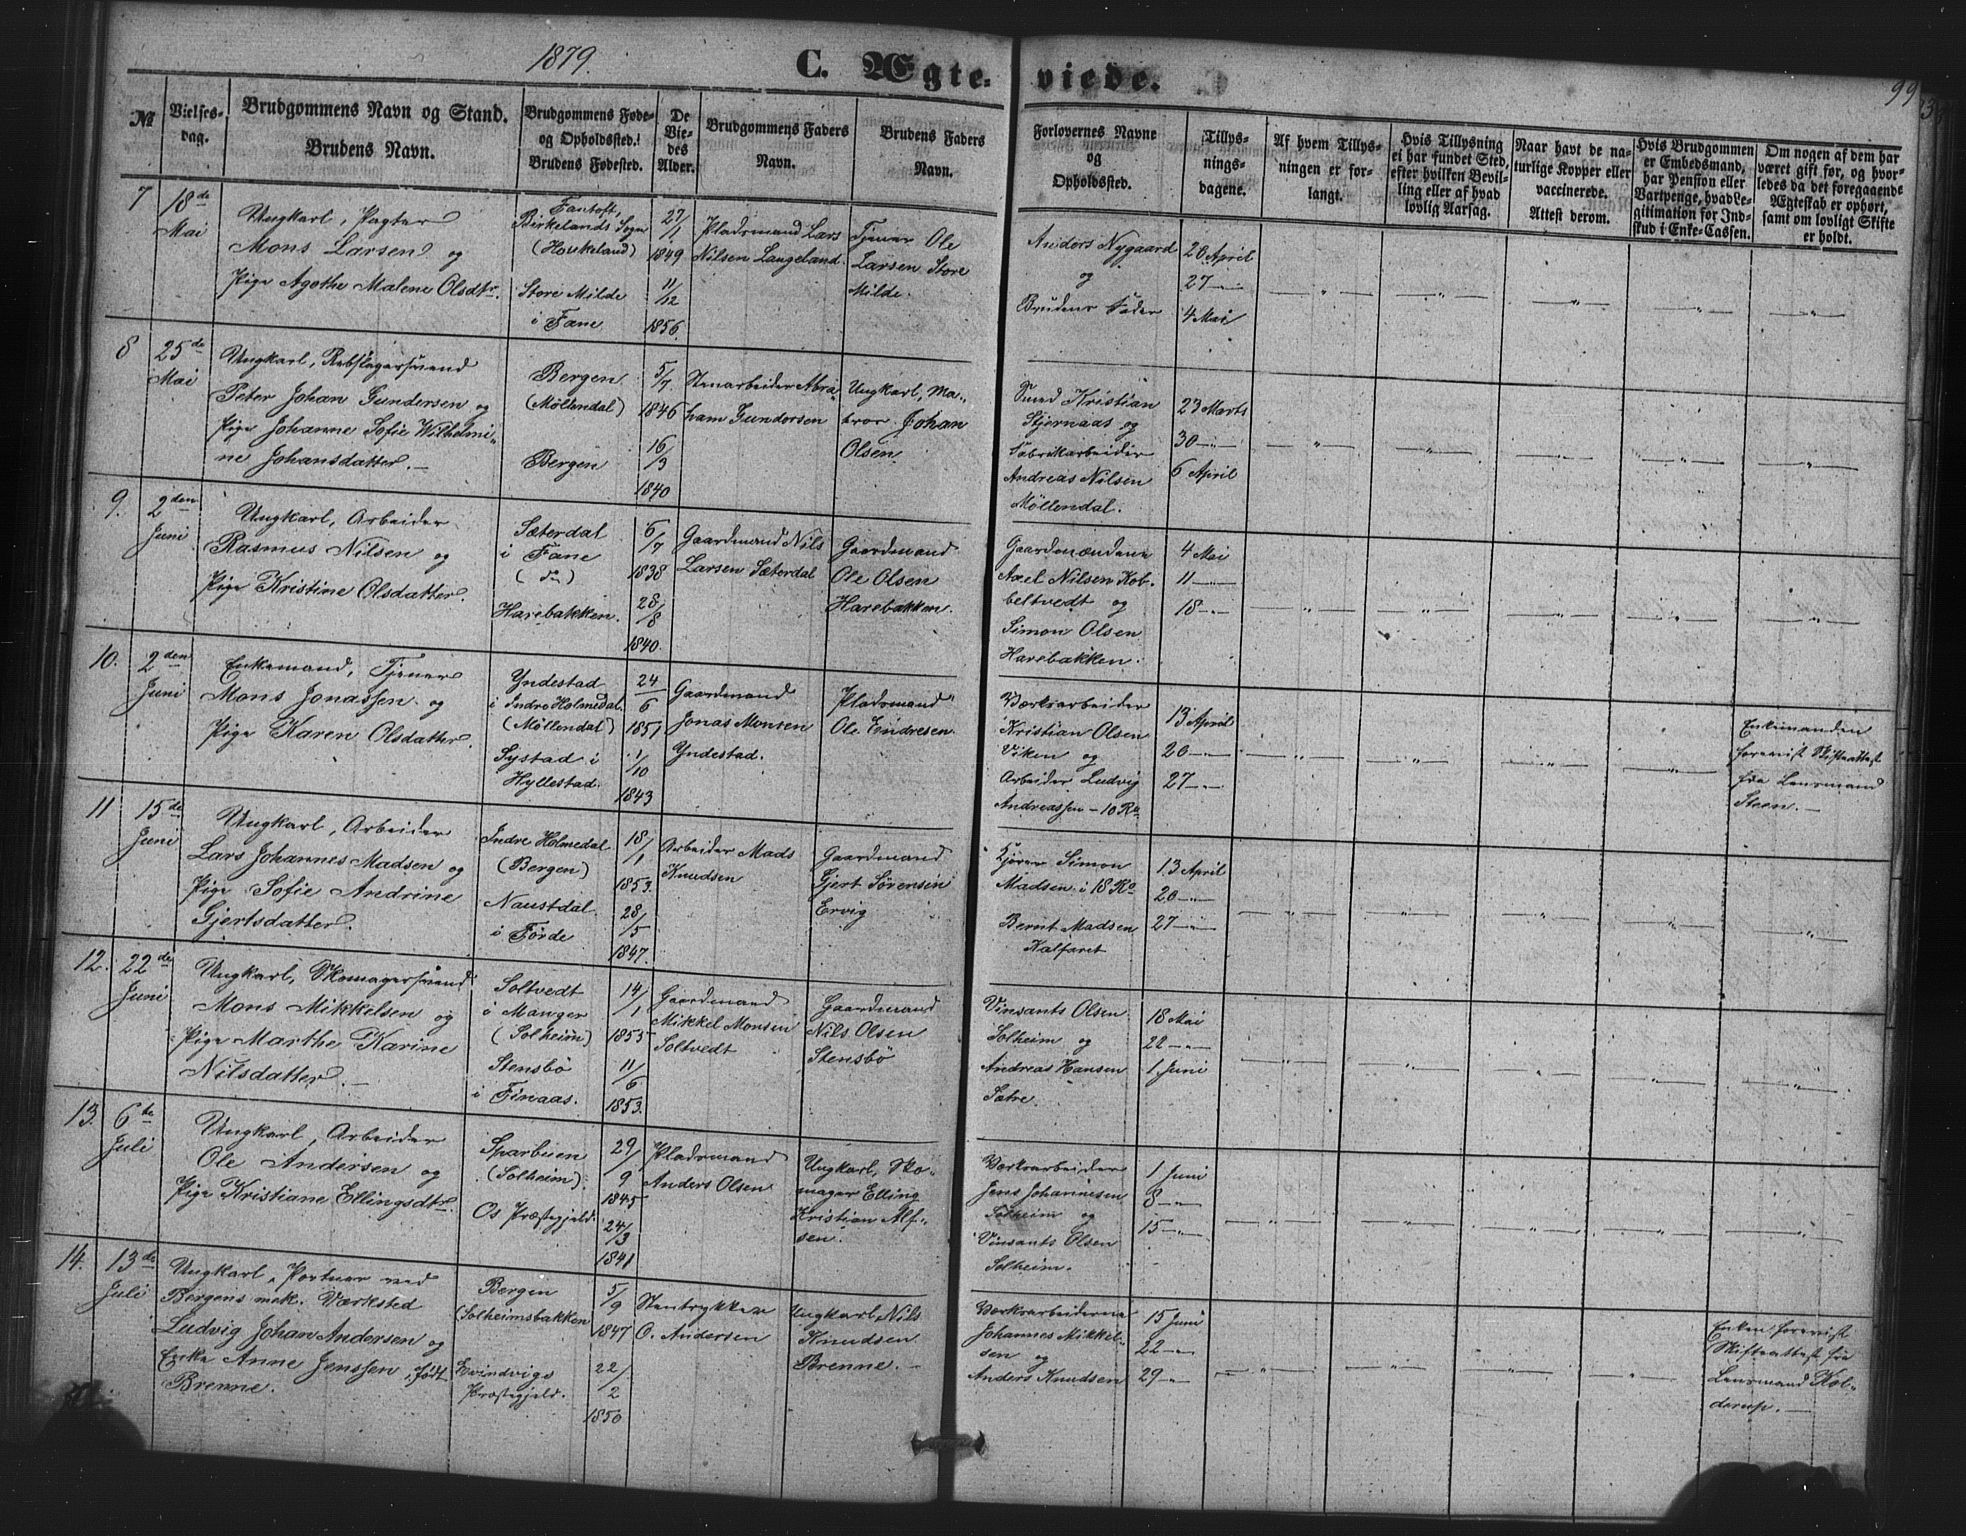 1879.
C. Ægteviede.
99
№
Vielses-
dag.
Brudgommens Navn og Stand.
Brudens Navn.
Brudgommens Føde-
og Opholdssted.
Brudens Fødested.
De
Vie-
des
Alder.
Brudgommens Faders
Navn.
Brudens Faders
Navn.
Forlovernes Navne
og
Opholdssted.
Tillys-
nings-
dagene.
Af hvem Tillys-
ningen er for-
langt.
Hvis Tillysning
ei har fundet Sted,
efter hvilken Bevil-
ling eller af hvad
lovlig Aarsag.
Naar havt de na-
turlige Kopper eller
vaccinerede.
Attest derom.
Hvis Brudgommen
er Embedsmand,
har Pension eller
Vartpenge, hvad Le-
gitimation for Ind-
skud i Enke-Cassen.
Om nogen af dem har
været gift før, og hvor-
ledes da det foregaaende
Ægteskab er ophørt,
samt om lovligt Skifte
er holdt.
7
18de
Mai
Ungkarl, Pagter
Mons Larsen og
Pige Agathe Malene Olsdtr.
Fantoft
Birkelands Sogn
(Houkeland)
Store Milde
i Fane
27/1
1849
11/12
1856.
Pladsmand Lars
Nilsen Langeland.
Tjener Ole
Larsen Store
Milde.
Anders Nygaard
og
Brudens Fader
20 April
27 —„—
4 Mai
8
25de
Mai
Ungkarl, Rebslagersvend
Peter Johan Gundersen og
Pige Johanne Sofie Wilhelmi-
ne Johansdatter. —
Bergen
(Möllendal)
Bergen
5/7
1846
16/3
1840
Stenarbeider Abra-
ham Gundersen
Ungkarl, Ma-
tros Johan
Olsen
Smed Kristian
Stjernaas og
Fabrikarbeider
Andreas Nilsen
Möllendal.
23 Marts
30 —„—
6 April
9.
2den
Juni
Ungkarl, Arbeider
Rasmus Nilsen og
Pige Kristine Olsdatter.
Sæterdal
i Fane
Harebakken.
6/7
1838
28/8
1840
Gaardmand Nils
Larsen Sæterdal
Gaardmand
Ole Olsen
Harebakken.
Gaardmændene
Axel Nilsen Kob-
beltvedt og
Simon Olsen
Harebakken.
4 Mai
11 —„—
18 —„—
10.
2den
Juni
Enkemand, Tjener
Mons Jonassen og
Pige Karen Olsdatter.
Yndestad
i Indre Holmedal
(Möllendal)
Systad i
Hyllestad.
24/6
1851
1/10
1843
Gaardmand
Jonas Monsen
Yndestad.
Pladsmand
Ole Endresen.
Værksarbeider
Kristian Olsen
Viken og
Arbeider Ludvig
Andreassen – 10 Ro.
13 April
20 —„—
27 —„—
Enkemanden
foreviist Skifteattest
fra Lensmand
Steen. —
11
15de
Juni
Ungkarl, Arbeider
Lars Johannes Madsen og
Pige Sofie Andrine
Gjertsdatter.
Indre Holmedal
(Bergen)
Naustdal
i Förde
18/1
1853.
28/5
1847.
Arbeider Mads
Knudsen
Gaardmand
Gjert Sørensen
Ervig
Kjører Simon
Madsen i 18 Ro
Bernt Madsen
Kalfaret
13 April
20 —„—
27 —„—
12.
22de
Juni
Ungkarl, Skomagersvend
Mons Mikkelsen og
Pige Marthe Karine
Nilsdatter. —
Soltvedt
i Manger
(Solheim)
Stensbö
i Finaas.
14/1
1855
11/6
1853.
Gaardmand
Mikkel Monsen
Soltvedt
Gaardmand
Nils Olsen
Stensbö
Vinsants Olsen
Solheim og
Andreas Hansen
Sætre.
18 Mai
22 —„—
1 Juni
13.
6te
Juli
Ungkarl, Arbeider
Ole Andersen og
Pige Kristiane Ellingsdtr.
Sparbuen
(Solheim).
Os Præstegjeld.
29/9
1845
24/3
1841
Pladsmand
Anders Olsen
Ungkarl, Sko-
mager Elling
Kristian Alf-
sen.
Værksarbeider
Jens Johannesen
Solheim og
Vinsants Olsen
Solheim.
1 Juni
8 —„—
15 —„—
14.
13de
Juli
Ungkarl, Portner ved
Bergens mek. Værksted
Ludvig Johan Andersen og
Enke Anne Jenssen, født
Brenne.
Bergen
(Solheimsbakken
Evindvigs
Præstegjeld.
5/9
1847
22/2
1850
Stentrykker
O. Andersen
Ungkarl Nils
Knudsen
Brenne. —
Værksarbeiderne
Johannes Mikkel-
sen og
Anders Knudsen
15 Juni
22 —„—
29 —„—
Enken foreviist
Skifteattest fra
Lensmand Kol-
derup. —